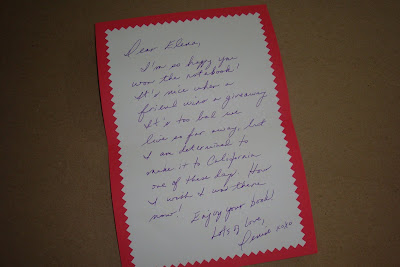 Dear Elena,
I'm so happy you
won the notebook!
It's nice when a
friend wins a giveaway
It's too bad we
live so far away, but
I am determined to
make it to California
one of these days. How
I wish I was there
now!
Enjoy your book!
Lots of Love,
Denise xoxo